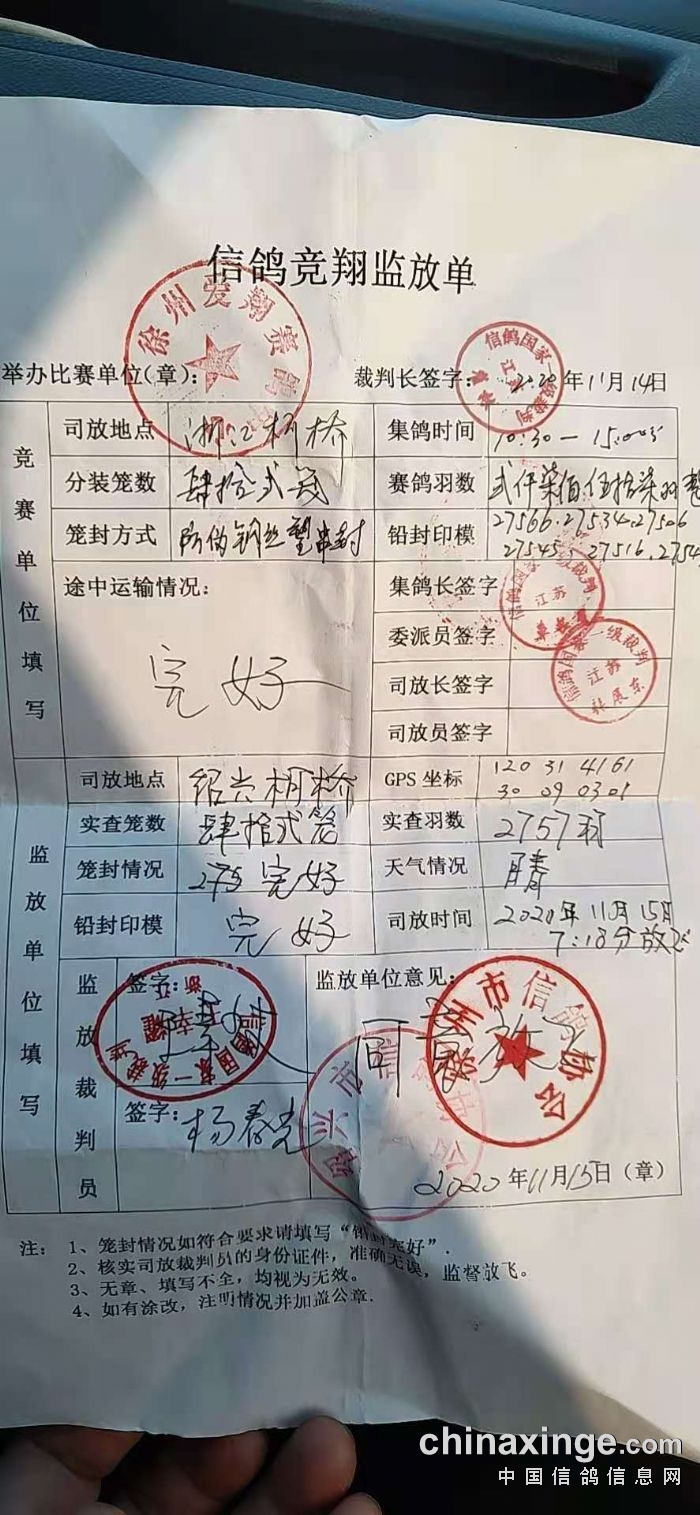 信鸽竞翔监放单
徐州发翔赛鸽
举办比赛单位(章): 裁判长签字: 2020年11月14日
信鸽国家一级裁判
江苏
竞赛单位填写
司放地点 浙江柯桥 集鸽时间 10:30－15:00
分装笼数 肆拾弍笼 赛鸽羽数 弍仟柒佰伍拾柒羽整
笼封方式 防伪钢丝塑串封 铅封印模 27566.27534.27506
27545.27516.2754
途中运输情况: 集鸽长签字
完好
信鸽国家一级裁判
江苏
委派员签字
信鸽国家一级裁判
江苏
司放长签字
司放员签字
监放单位填写
司放地点 绍兴柯桥 GPS坐标 120 31 4161
30 09 0301
实查笼数 肆拾弍笼 实查羽数 2757羽
笼封情况 完好 天气情况 晴
铅封印模 完好 司放时间 2020年11月15日
7:18分放飞
监放裁判员
签字: 监放单位意见:
信鸽国家一级裁判
浙江
同意放飞
市信鸽协会
绍兴市信鸽协会
签字: 杨春光
2020年11月15日(章)
注: 1、笼封情况如符合要求请填写“铅封完好”.
2、核实司放裁判员的身份证件，准确无误，监督放飞。
3、无章、填写不全，均视为无效。
4、如有涂改，注明情况并加盖公章.
chinaxinge.com
中国信鸽信息网